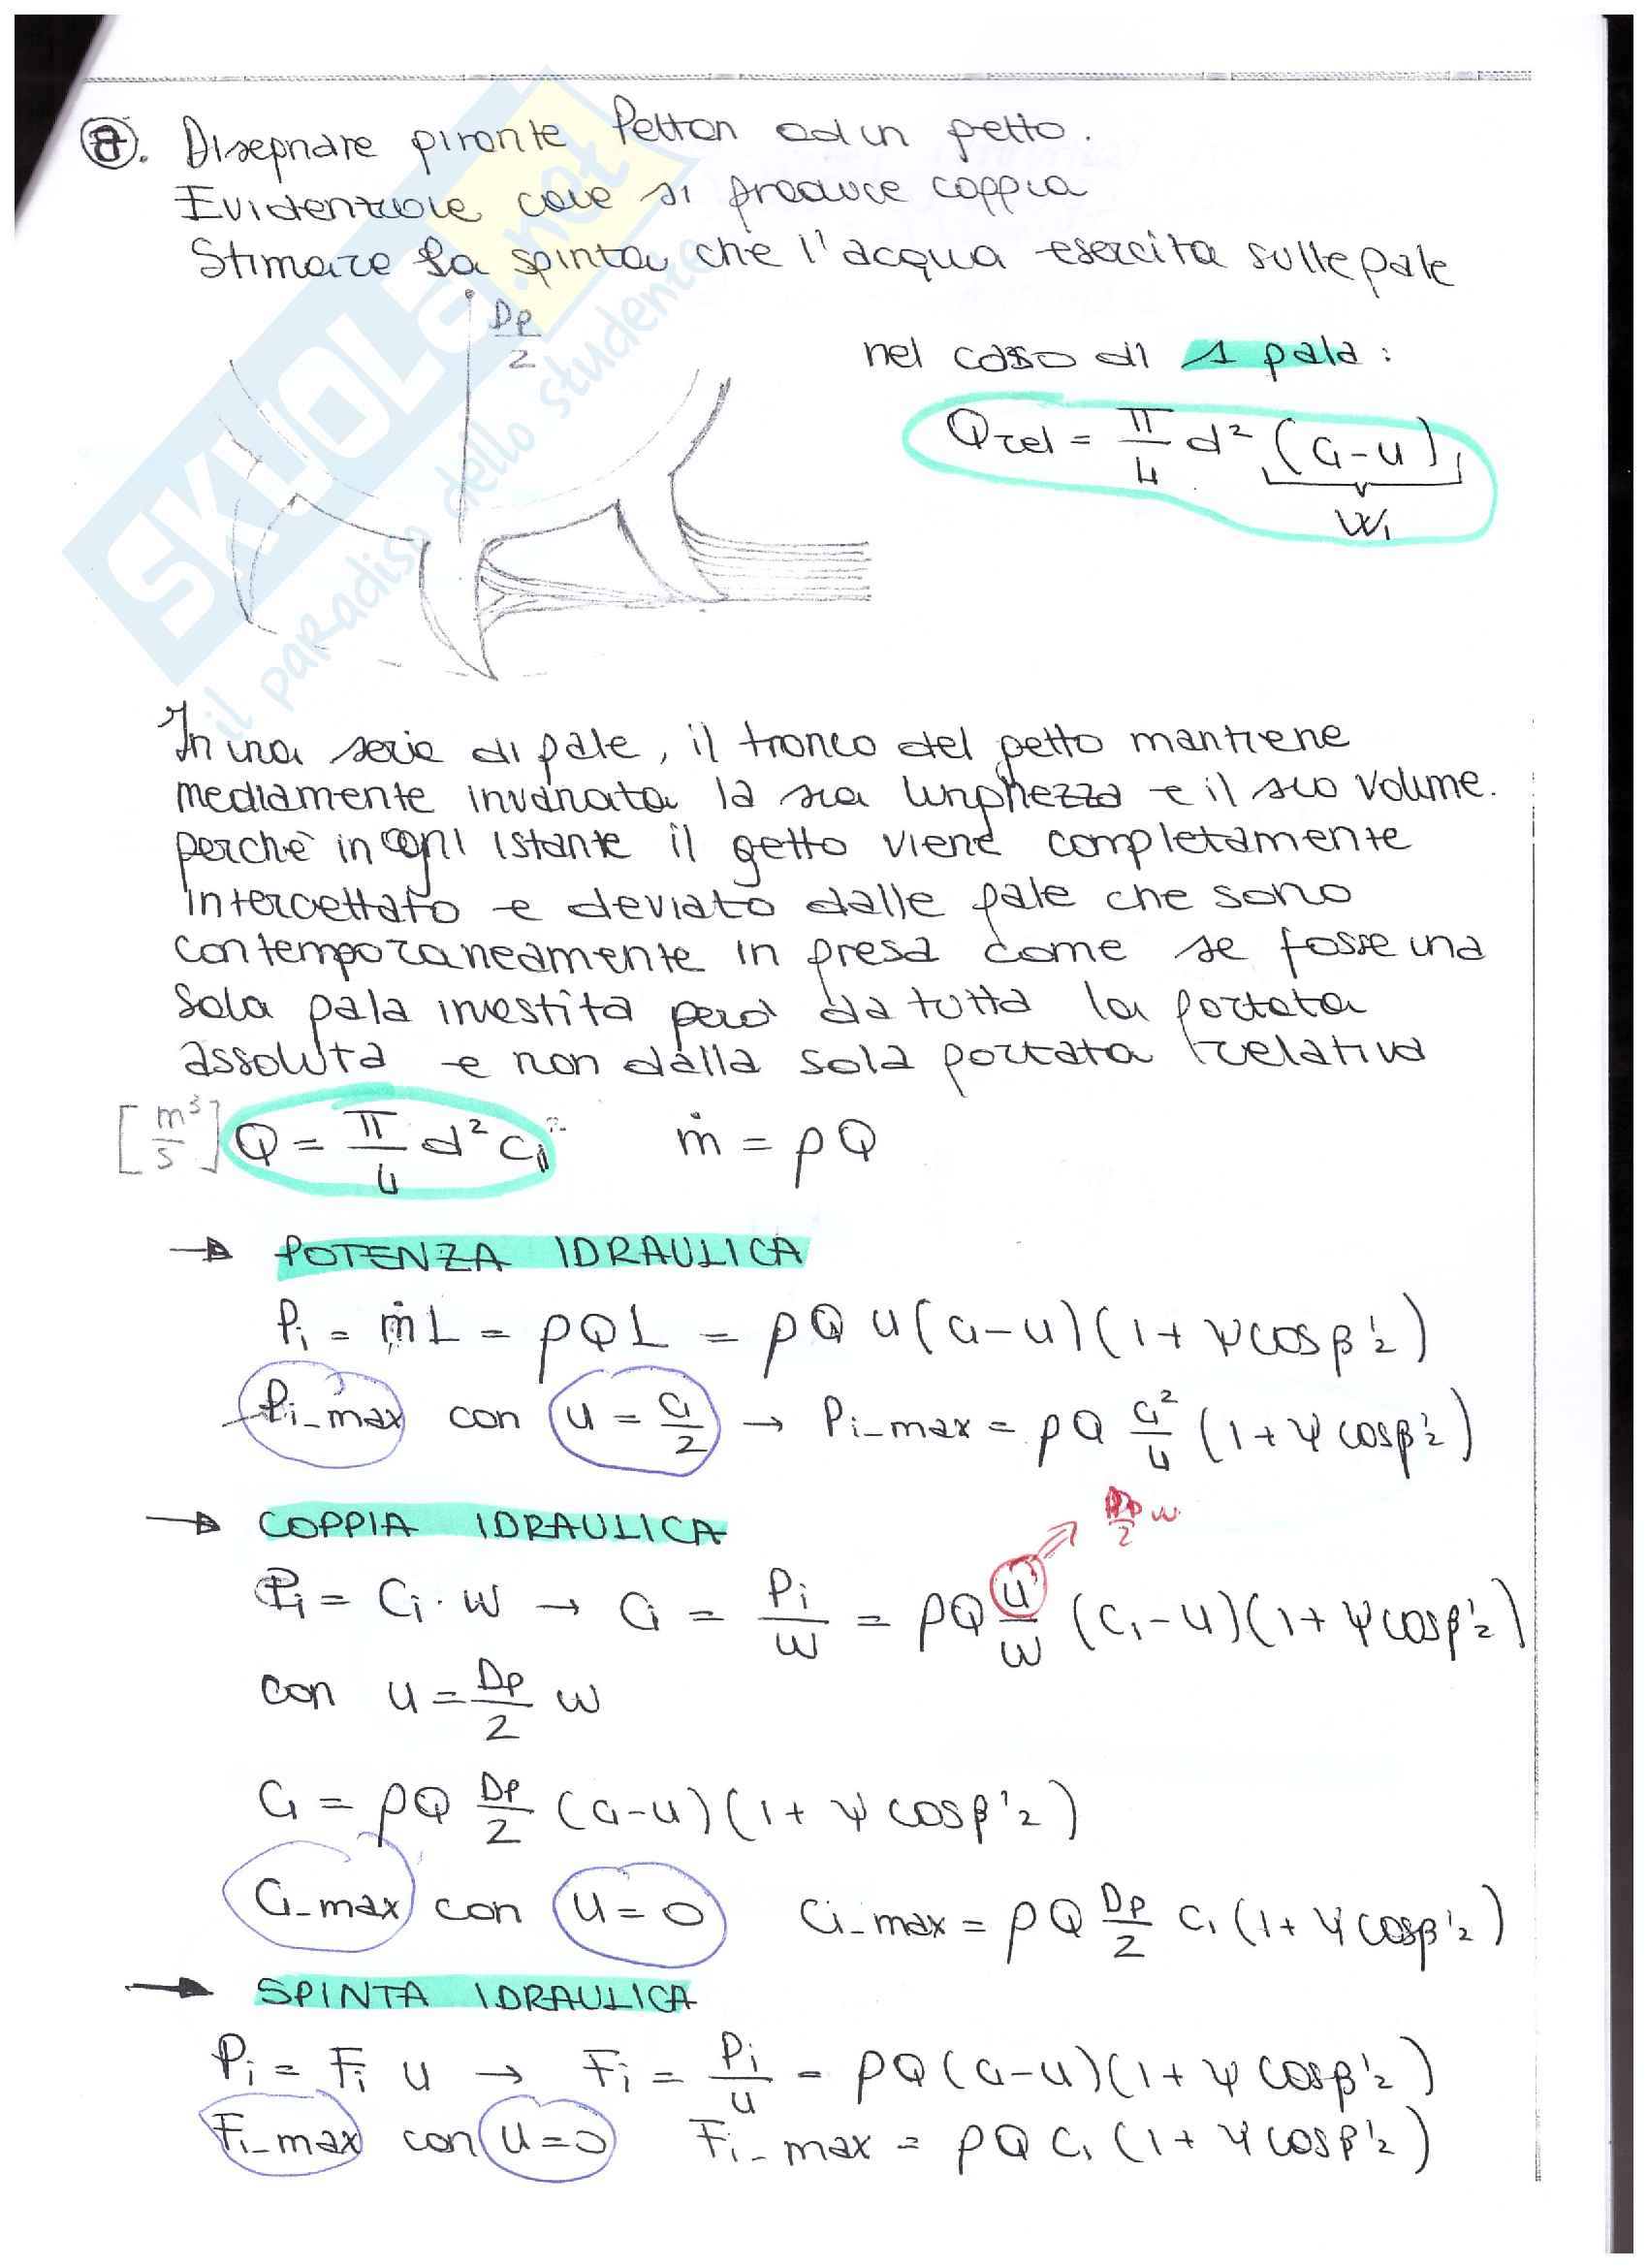 7. Disegnare girante Pelton ad un getto.
Evidenziare dove si produce coppia
Stimare la spinta che l'acqua esercita sulle pale
Dp/2
nel caso di 1 pala:
Qrel = π/4 d² (c₁-u)
w₁
In una serie di pale, il tronco del getto mantiene
mediamente invariata la sua lunghezza e il suo volume.
perchè in ogni istante il getto viene completamente
intercettato e deviato dalle pale che sono
contemporaneamente in presa come se fosse una
sola pala investita però da tutta la portata
assoluta e non dalla sola portata relativa
[m³/s] Q = π/4 d² c₁ ṁ = ρQ
→ POTENZA IDRAULICA
Pi = ṁL = ρQL = ρQ u(c₁-u)(1+ψcosβ'₂)
Pi_max con u = c₁/2 → Pi_max = ρQ c₁²/4 (1+ψcosβ'₂)
→ COPPIA IDRAULICA
Dp/2 ω
Pi = Ci·ω → Ci = Pi/ω = ρQ u/ω (c₁-u)(1+ψcosβ'₂)
con u = Dp/2 ω
Ci = ρQ Dp/2 (c₁-u)(1+ψcosβ'₂)
Ci_max con u=0 Ci_max = ρQ Dp/2 c₁(1+ψcosβ'₂)
→ SPINTA IDRAULICA
Pi = Fi u → Fi = Pi/u = ρQ(c₁-u)(1+ψcosβ'₂)
Fi_max con u=0 Fi_max = ρQ c₁(1+ψcosβ'₂)
SKUOLA.net
il paradiso dello studente